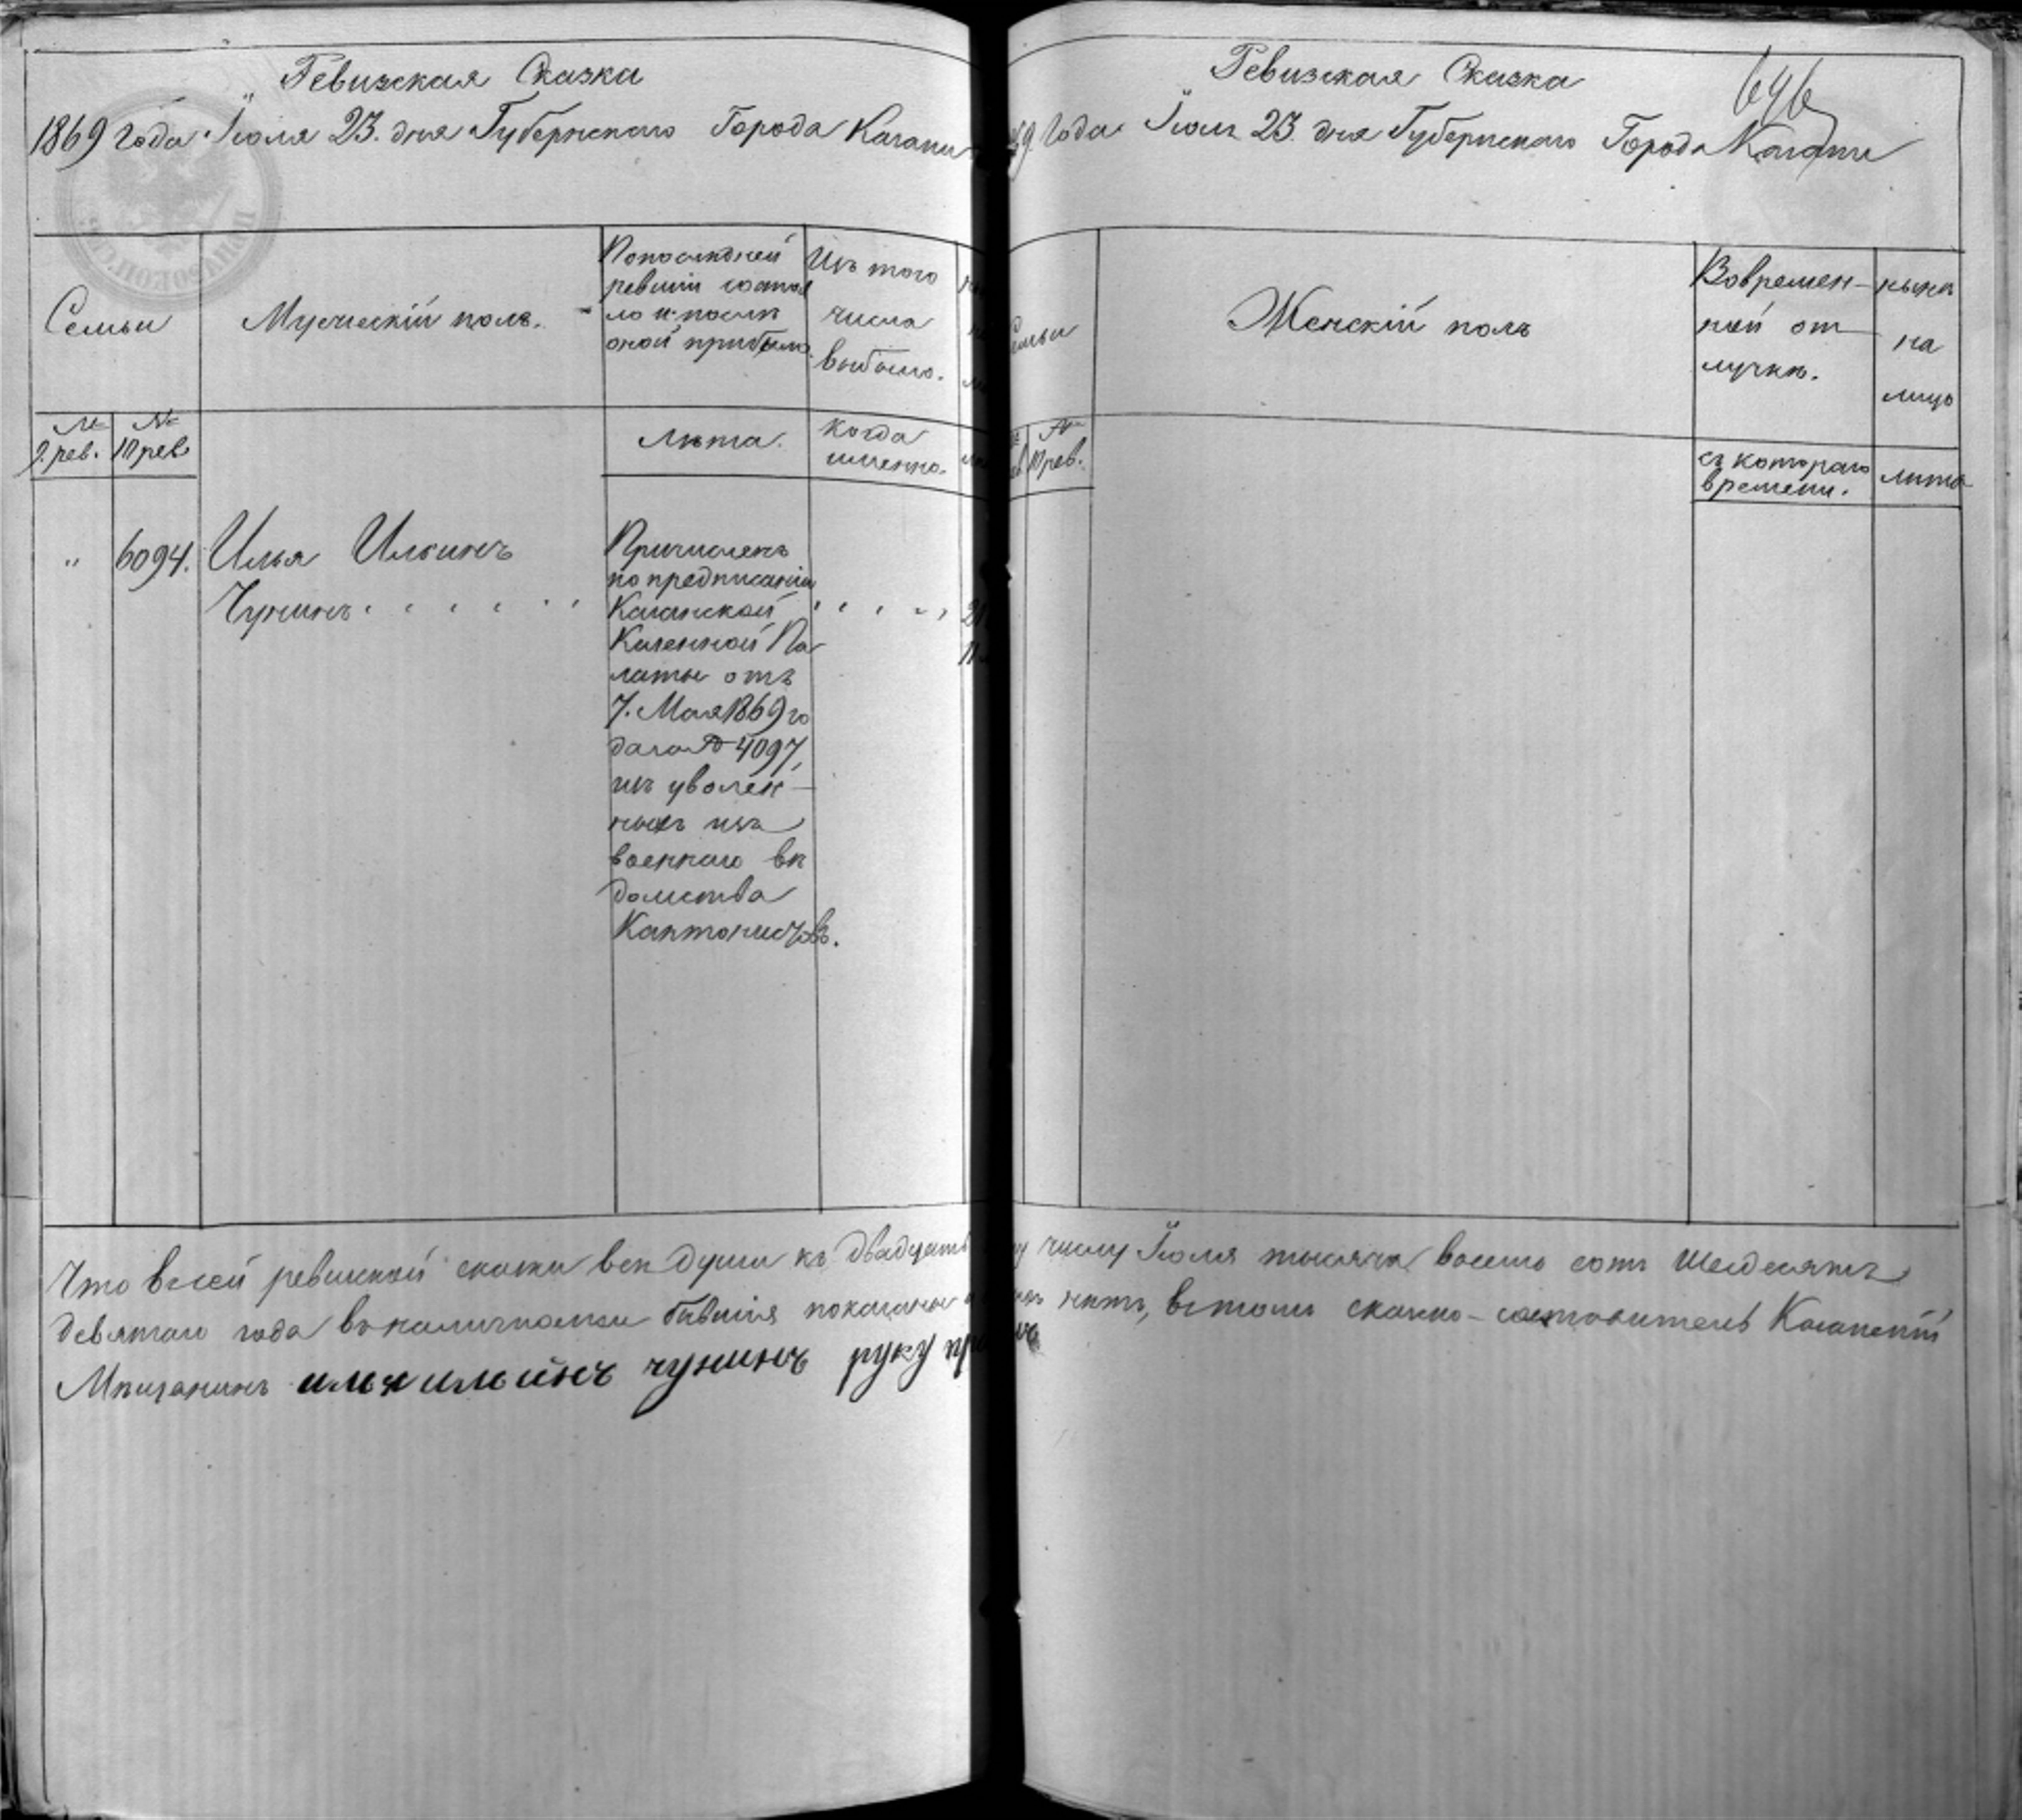 Ревизская Сказка
1869 года Іюля 23. дня Губернскаго Города Казани
Семьи
Мужескій полъ.
Попослѣдней
ревизіи состоя
ло и послѣ
оной прибыло.
Изъ того
числа
выбыло.
№
9. рев.
№
10 рев.
Лѣта.
когда
именно.
" 6094. Илья Ильинъ
Чунинъ
Причисленъ
по предписанію
Казанской
Казенной Па
латы отъ
7. Мая 1869 го
да за № 4097,
изъ уволен-
ныхъ изъ
военнаго вѣ
домства
Кантонистовъ.
Ревизская Сказка
646
69 Года Іюля 23. дня Губернскаго Города Казани
Семьи
Женскій полъ
Вовремен-
ной от
лучкѣ.
нынѣ
на
лицо
№
10 рев.
съ котораго
времени.
лѣта
Что въ сей ревизской сказкѣ всѣ души къ двадцать числу Іюля тысяча восемь сотъ Шесдесятъ
девятаго года въ наличности бывшія показаны и нѣтъ, въ томъ сказко-составитель Казанскій
Мѣщанинъ илья ильинъ чунинъ руку